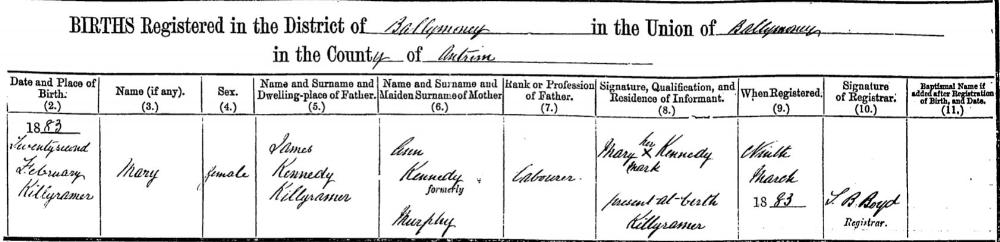 BIRTHS Registered in the District of Ballymoney in the Union of Ballymoney
in the County of Antrim
Date and Place of Birth. (2.)
Name (if any). (3.)
Sex. (4.)
Name and Surname and Dwelling-place of Father. (5.)
Name and Surname and Maiden Surname of Mother (6.)
Rank or Profession of Father. (7.)
Signature, Qualification, and Residence of Informant. (8.)
When Registered. (9.)
Signature of Registrar. (10.)
Baptismal Name if added after Registration of Birth, and Date. (11.)
1883
Twentysecond
February
Killyramer
Mary
female
James
Kennedy
Killyramer
Ann
Kennedy
formerly
Murphy
Labourer
Mary her x Kennedy
mark
present at birth
Killyramer
Ninth
March
1883
S. B. Boyd
Registrar.